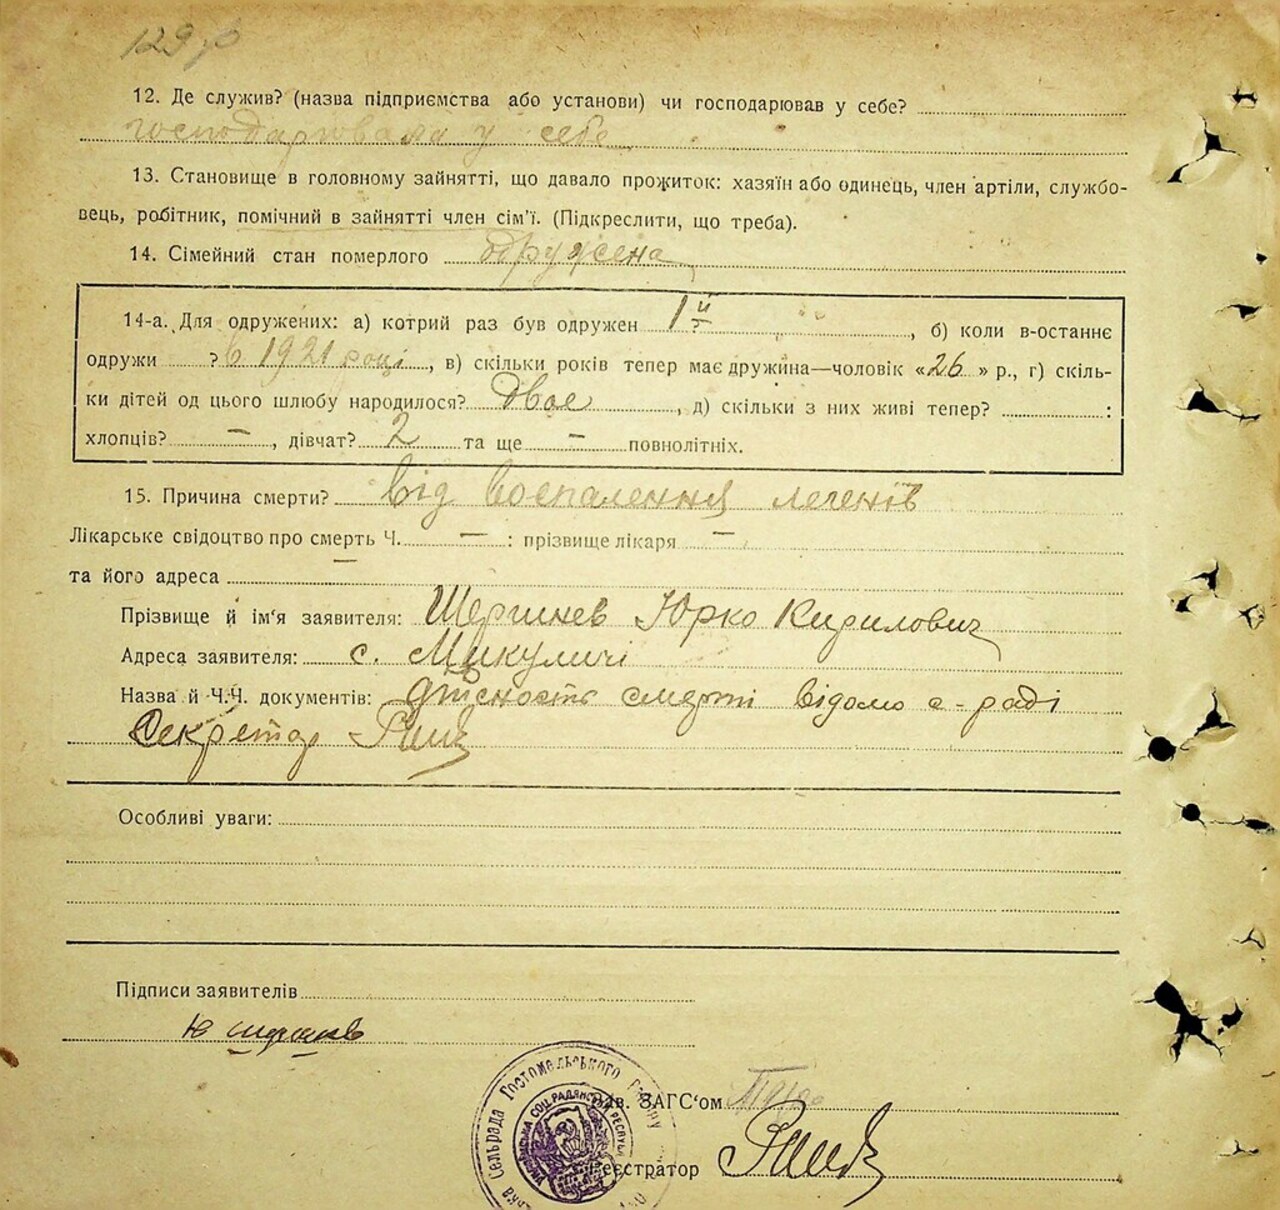 129
12. Де служив? (назва підприємства або установи) чи господарював у себе?
господарювала у себе
13. Становище в головному зайнятті, що давало прожиток: хазяїн або одинець, член артіли, службо-
вець, робітник, помічний в зайнятті член сім'ї. (Підкреслити, що треба).
14. Сімейний стан померлого одружена
14-а. Для одружених: а) котрий раз був одружен 1й, б) коли в-останнє
одружи ? в 1921 році, в) скільки років тепер має дружина—чоловік «26» р., г) скіль-
ки дітей од цього шлюбу народилося? двое, д) скільки з них живі тепер? :
хлопців? —, дівчат? 2 та ще — повнолітніх.
15. Причина смерти? від воспалення легенів
Лікарське свідоцтво про смерть Ч. — : прізвище лікаря —
та його адреса —
Прізвище й ім'я заявителя: Шергинев Юрко Кирилович
Адреса заявителя: с. Микуличі
Назва й Ч.Ч. документів: дійсность смерті відомо с-раді
Секретар
Особливі уваги:
Підписи заявителів
Ю
Зав. ЗАГС'ом
Реєстратор
Сельрада Гостомельського району